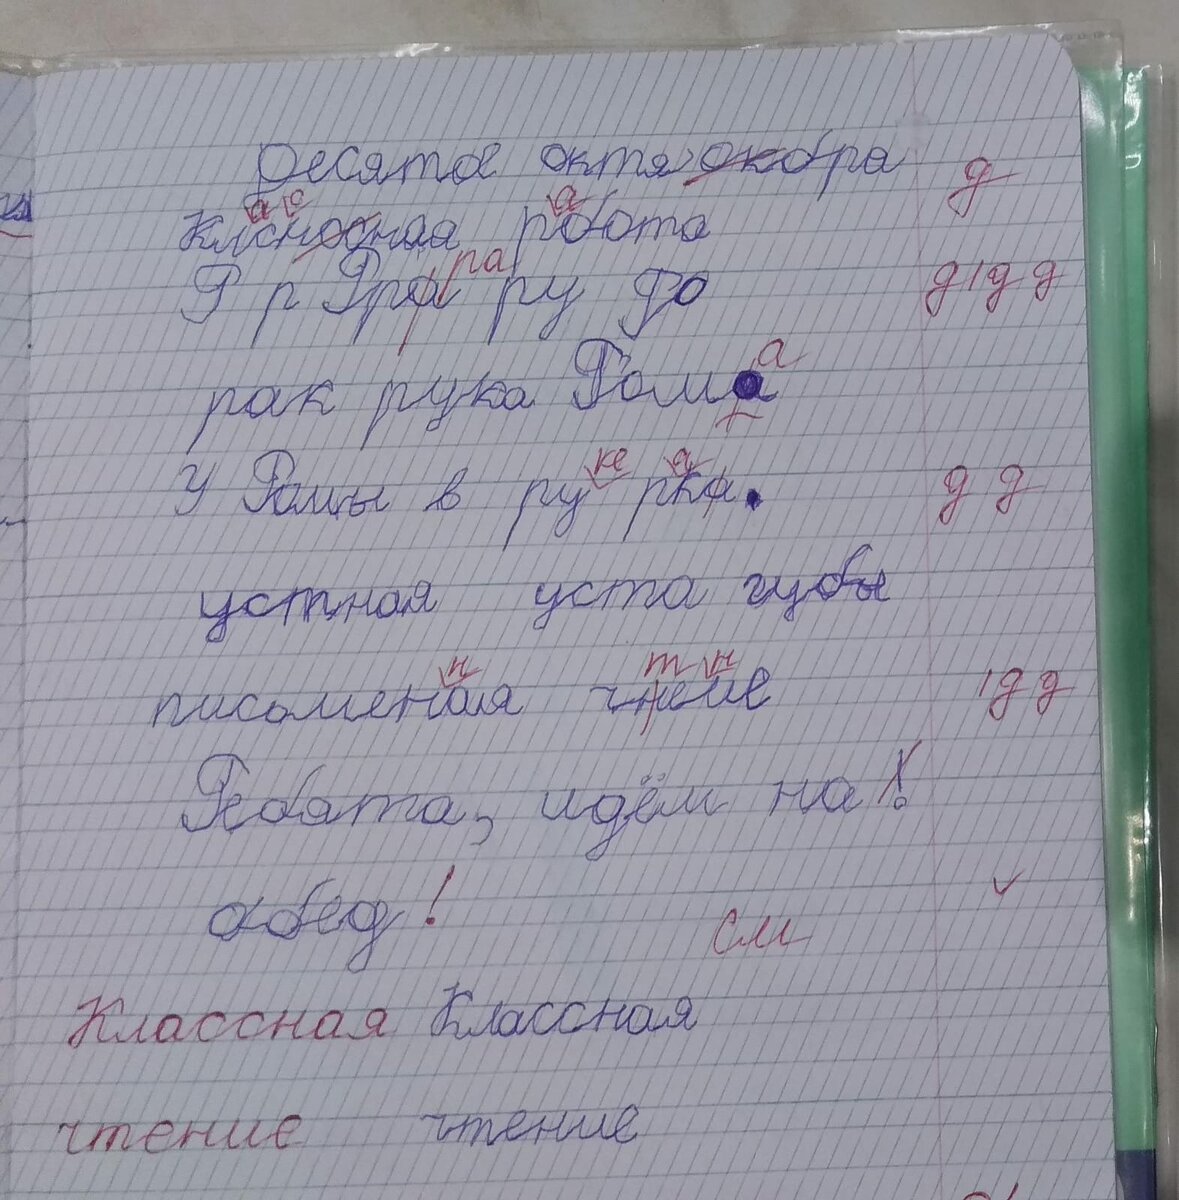 Десятое октя окобра д
а с а
Клсносная рбота
ра
Р р Рра ру до д | д д
рак рука Рома а
ке а
У Ромы в ру рка. д д
устная уста губы
н т н
письменая чнеие | д д
Ребята, идём на !
обед ! см
Классная Классная
чтение чтение